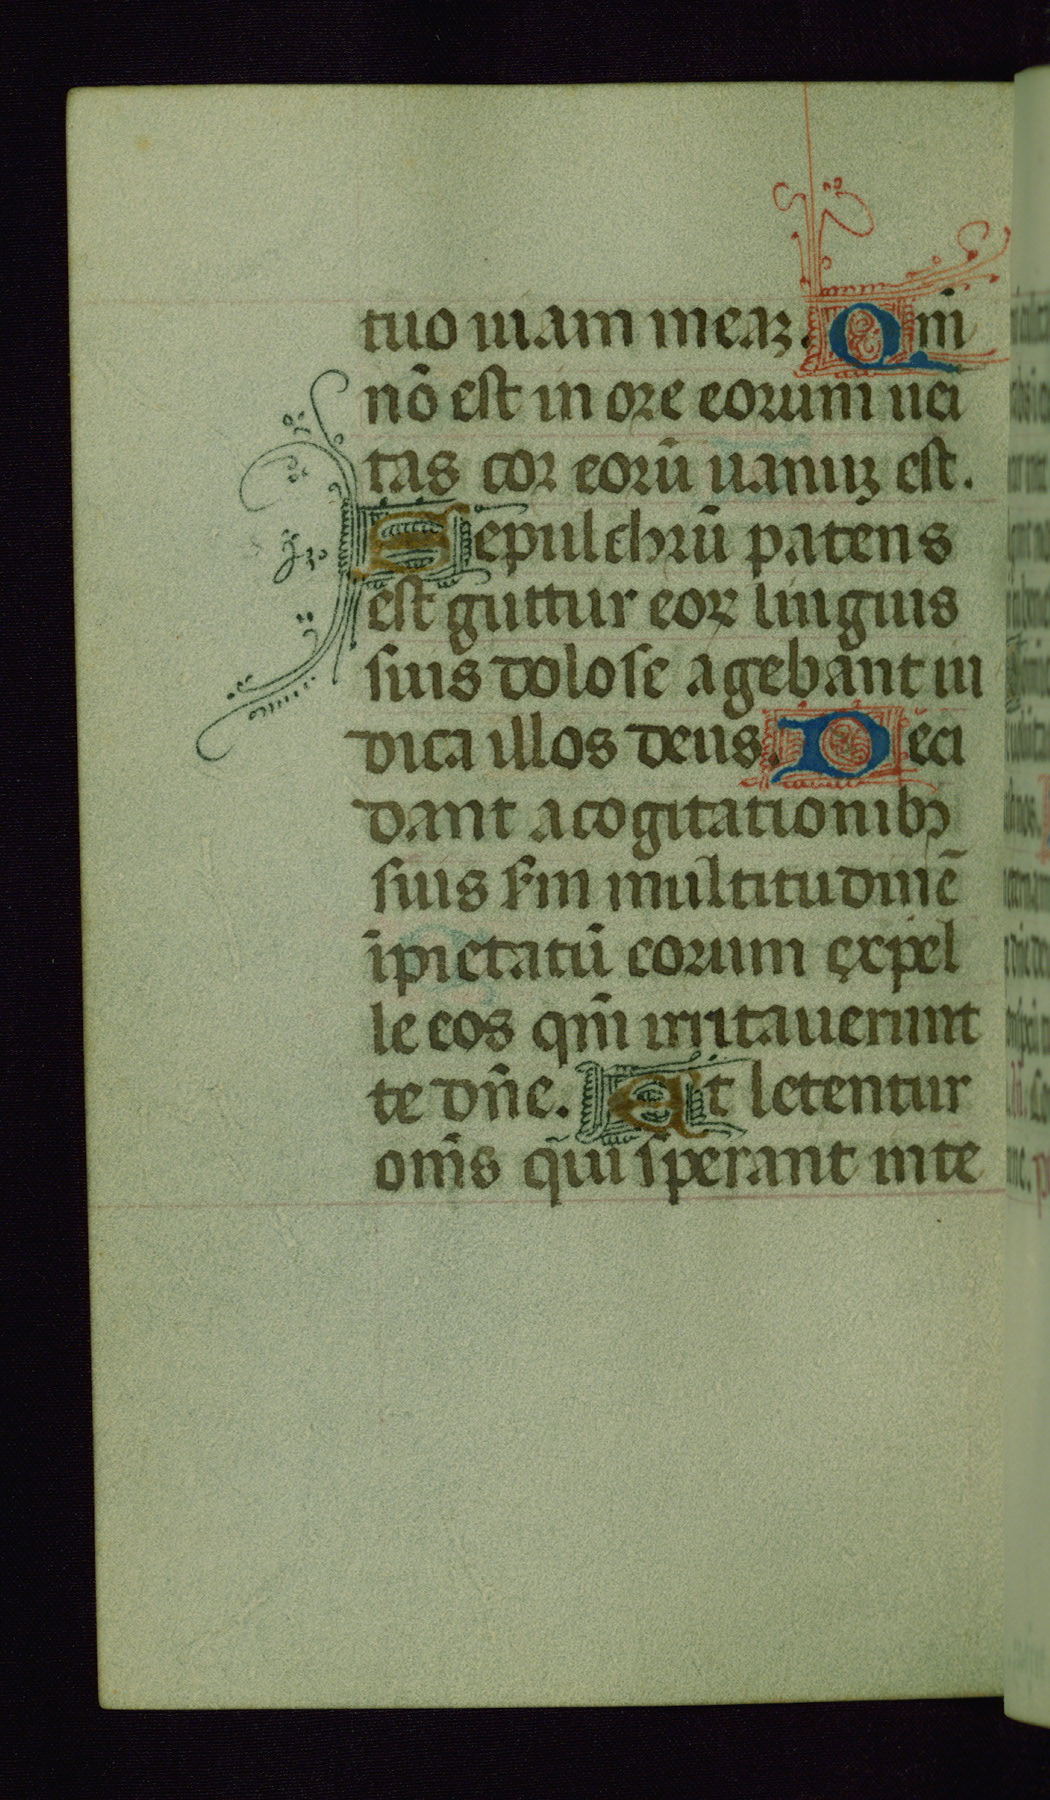 tuo uiam meaꝫ. Qm̄
nō est in ore eorum ueri
tas cor eorū uanuꝫ est.
Sepulchrū patens
est guttur eoꝝ linguis
suis dolose agebant iu
dica illos deus. Deci
dant a cogitationibꝫ
suis scḋm multitudinē
īpietatū eorum expel
le eos qm̄ irritauerunt
te dn̄e. Et letentur
om̄s qui sperant in te